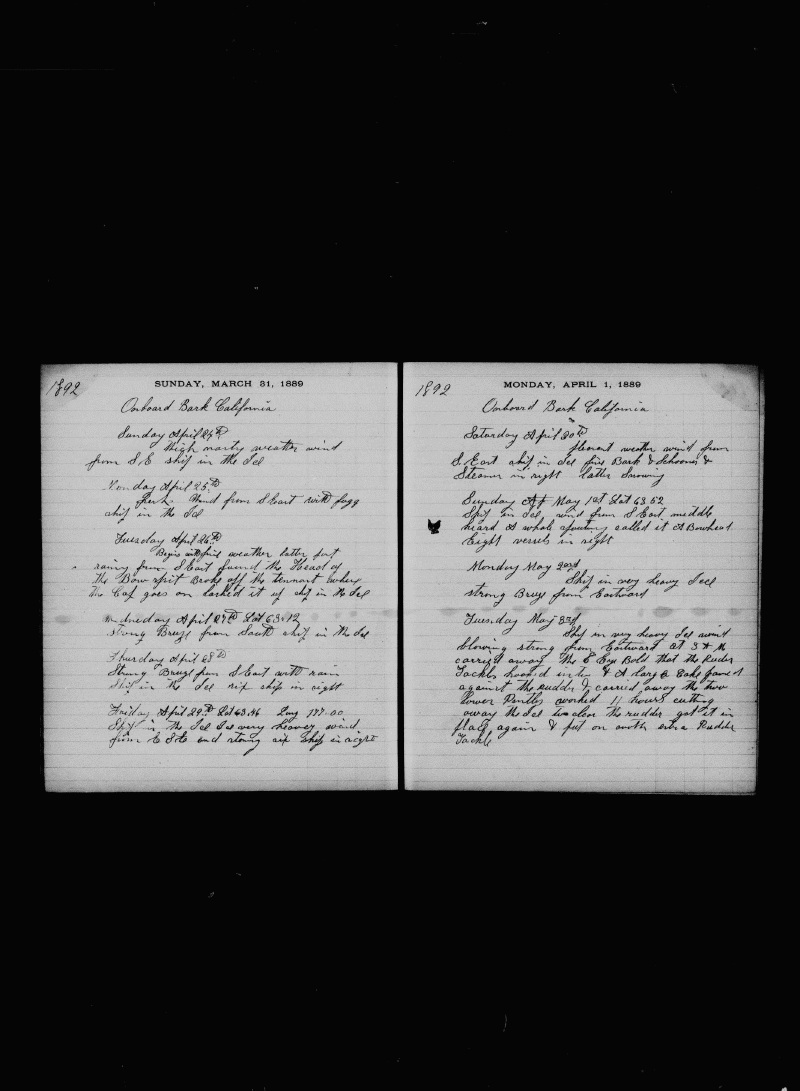 1892
SUNDAY, MARCH 31, 1889
Onboard Bark California
Sunday April 24th
weather wind
from S.E ship in the Ice
Monday April 25th
wind from S East with fogg
ship in the Ice
Tuesday April 26th
Begins with fine weather latter part
rainy from S East found the Head of
the Bow sprit Broke off the tennant where
the Cap goes on it up ship in the Ice
Wednesday April 27th Lat 63.12
strong Breze from South ship in the Ice
Thursday April 28th
Strong Breze from S East with rain
Ship in the Ice six ship in sight
Friday April 29th Lat 63.46 Long 177-00
Ship in the Ice Ice very heavey wind
from E S E and six ship in sight
1892
MONDAY, APRIL 1, 1889
Onboard Bark California
Saturday April 30th
plesent weather wind from
S. East ship in Ice five Bark & Schooner &
Steamer in sight latter Snowing
Sunday May 1st Lat 63 52
Ship in Ice, wind from S East middle
heard A whale spouting called it A Bowhead
Eight vessels in sight
Monday May 2nd
Ship in very heavy Icee
strong Breze from Eastward
Tuesday May 3rd
Ship in very heavy Ice wind
blowing strong from Eastward at 3
carried away the Eye Bold that the Ruder
Tackls hooked into & A large Cake
against the Rudder & carried away the two
lower worked 11 hours cutting
away the Ice to clear the rudder got it in
place again & put on another extra Rudder
Tackle